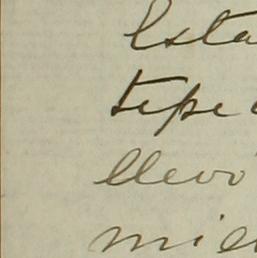 Esta
tepe
llevó
mie